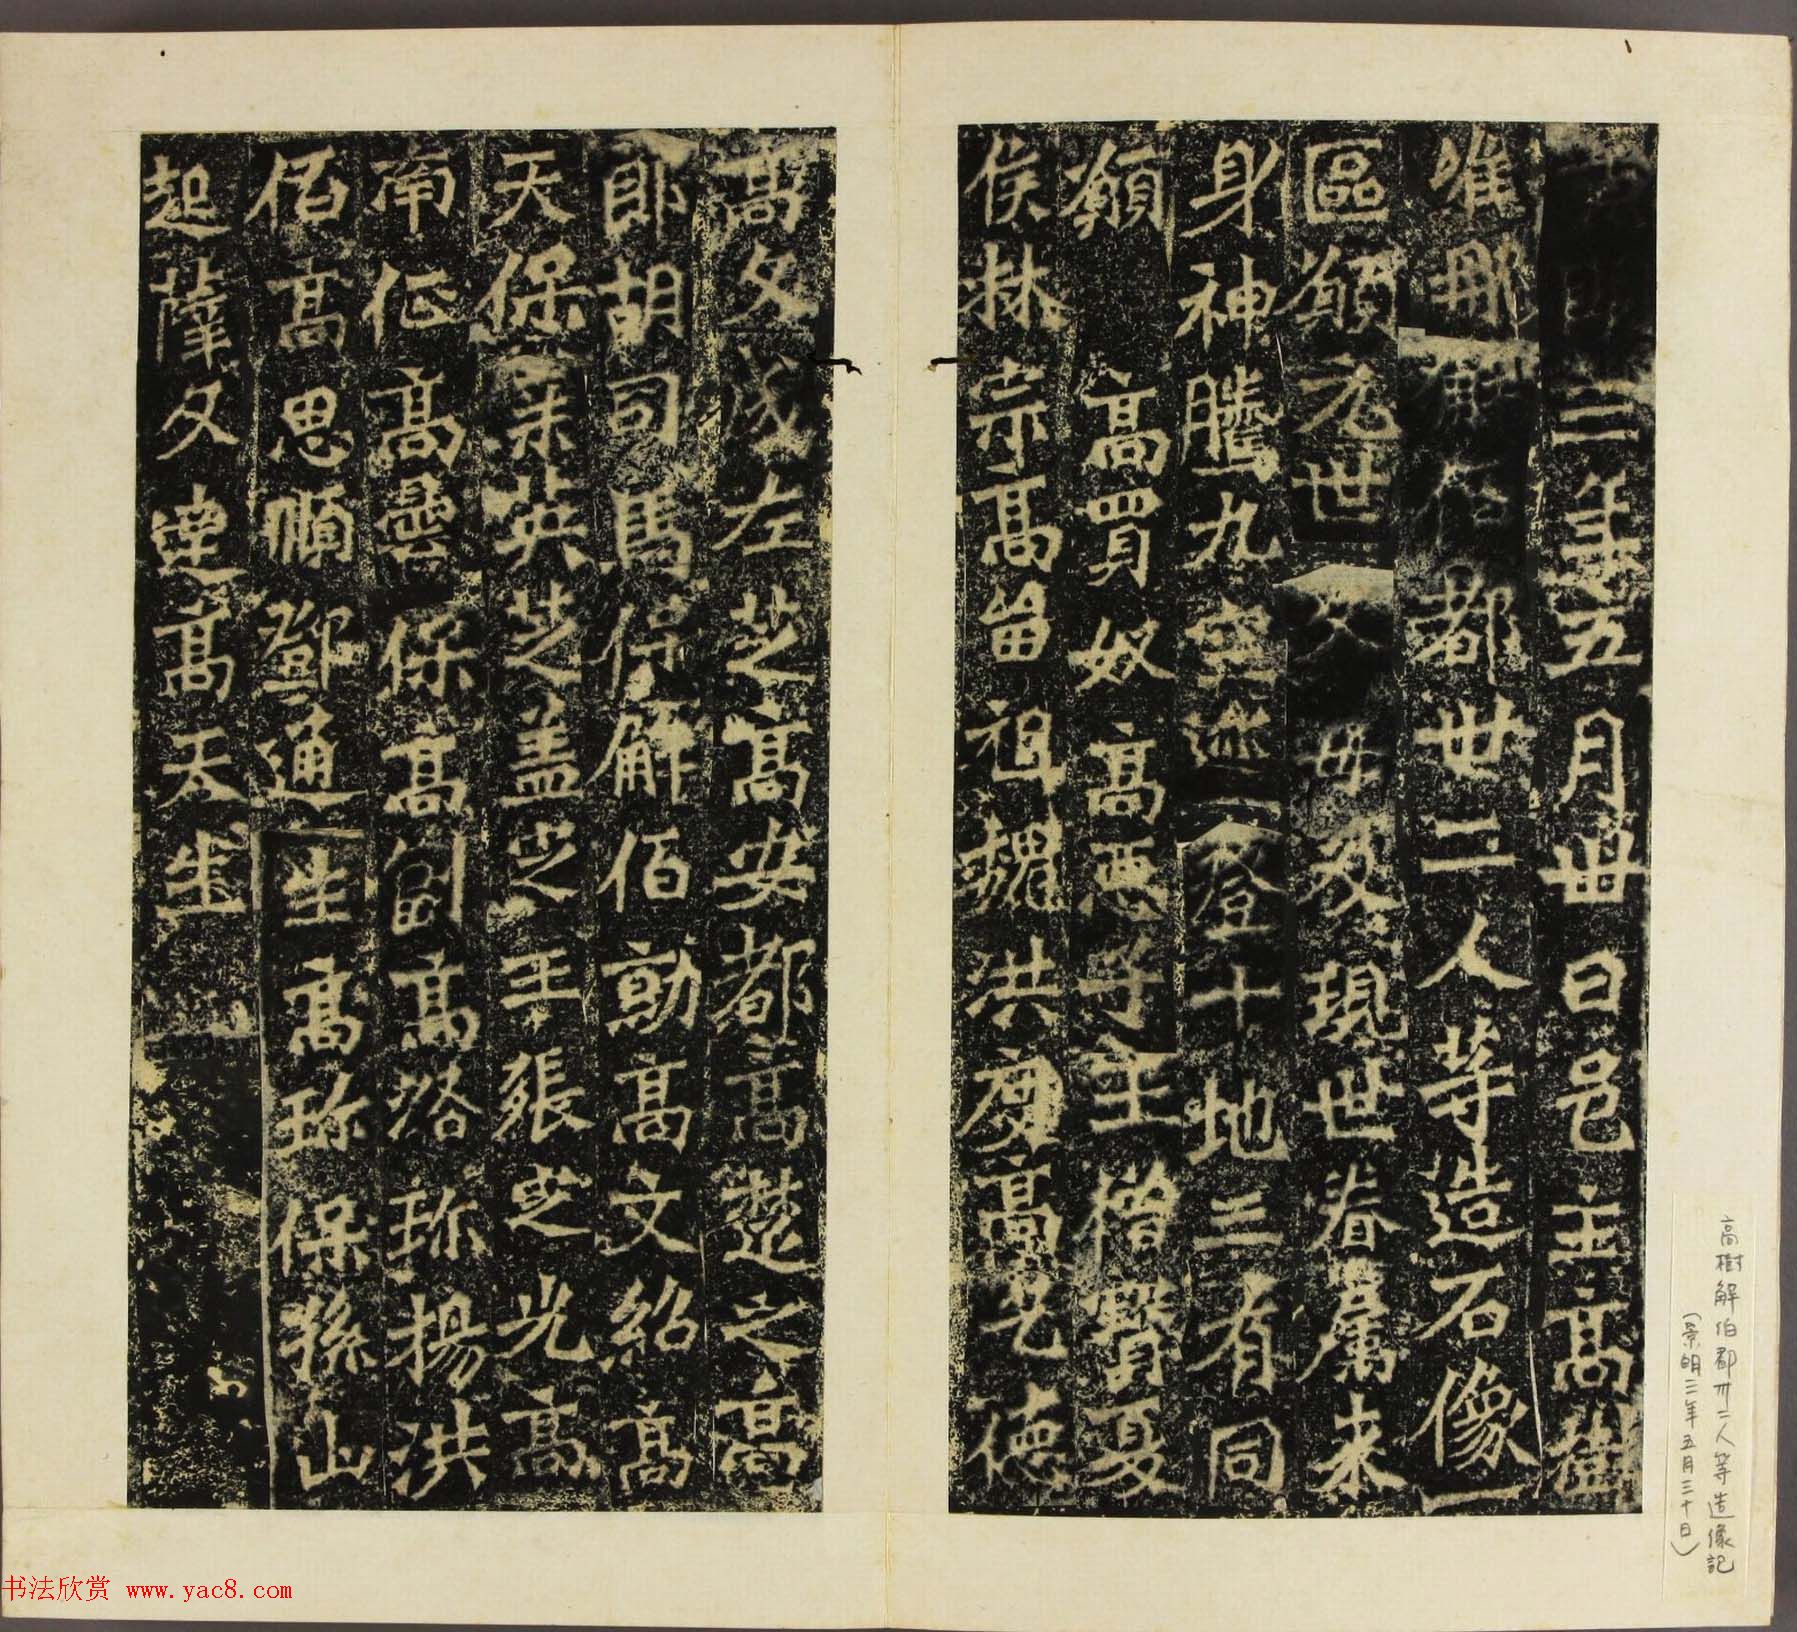 景明三年五月卅日邑主高樹
唯那解佰都卅二人等造石像一
區願元世父母及現世眷属来
身神騰九空迹登十地三有同
願高買奴高惡子王僧寶夏
侯林宗高留祖魏洪度高乞德
高文成左芝高安都高楚之高
郎胡司馬保解佰勍高文紹高
天保朱英芝盖芝王張芝光高
南征高曇保高高洛珎楊洪
佰高思順鄧通生高珎保孫山
起薩文達高天生
高樹解伯都卅二人等造像記
(景明三年五月三十日)
书法欣赏 www.yac8.com